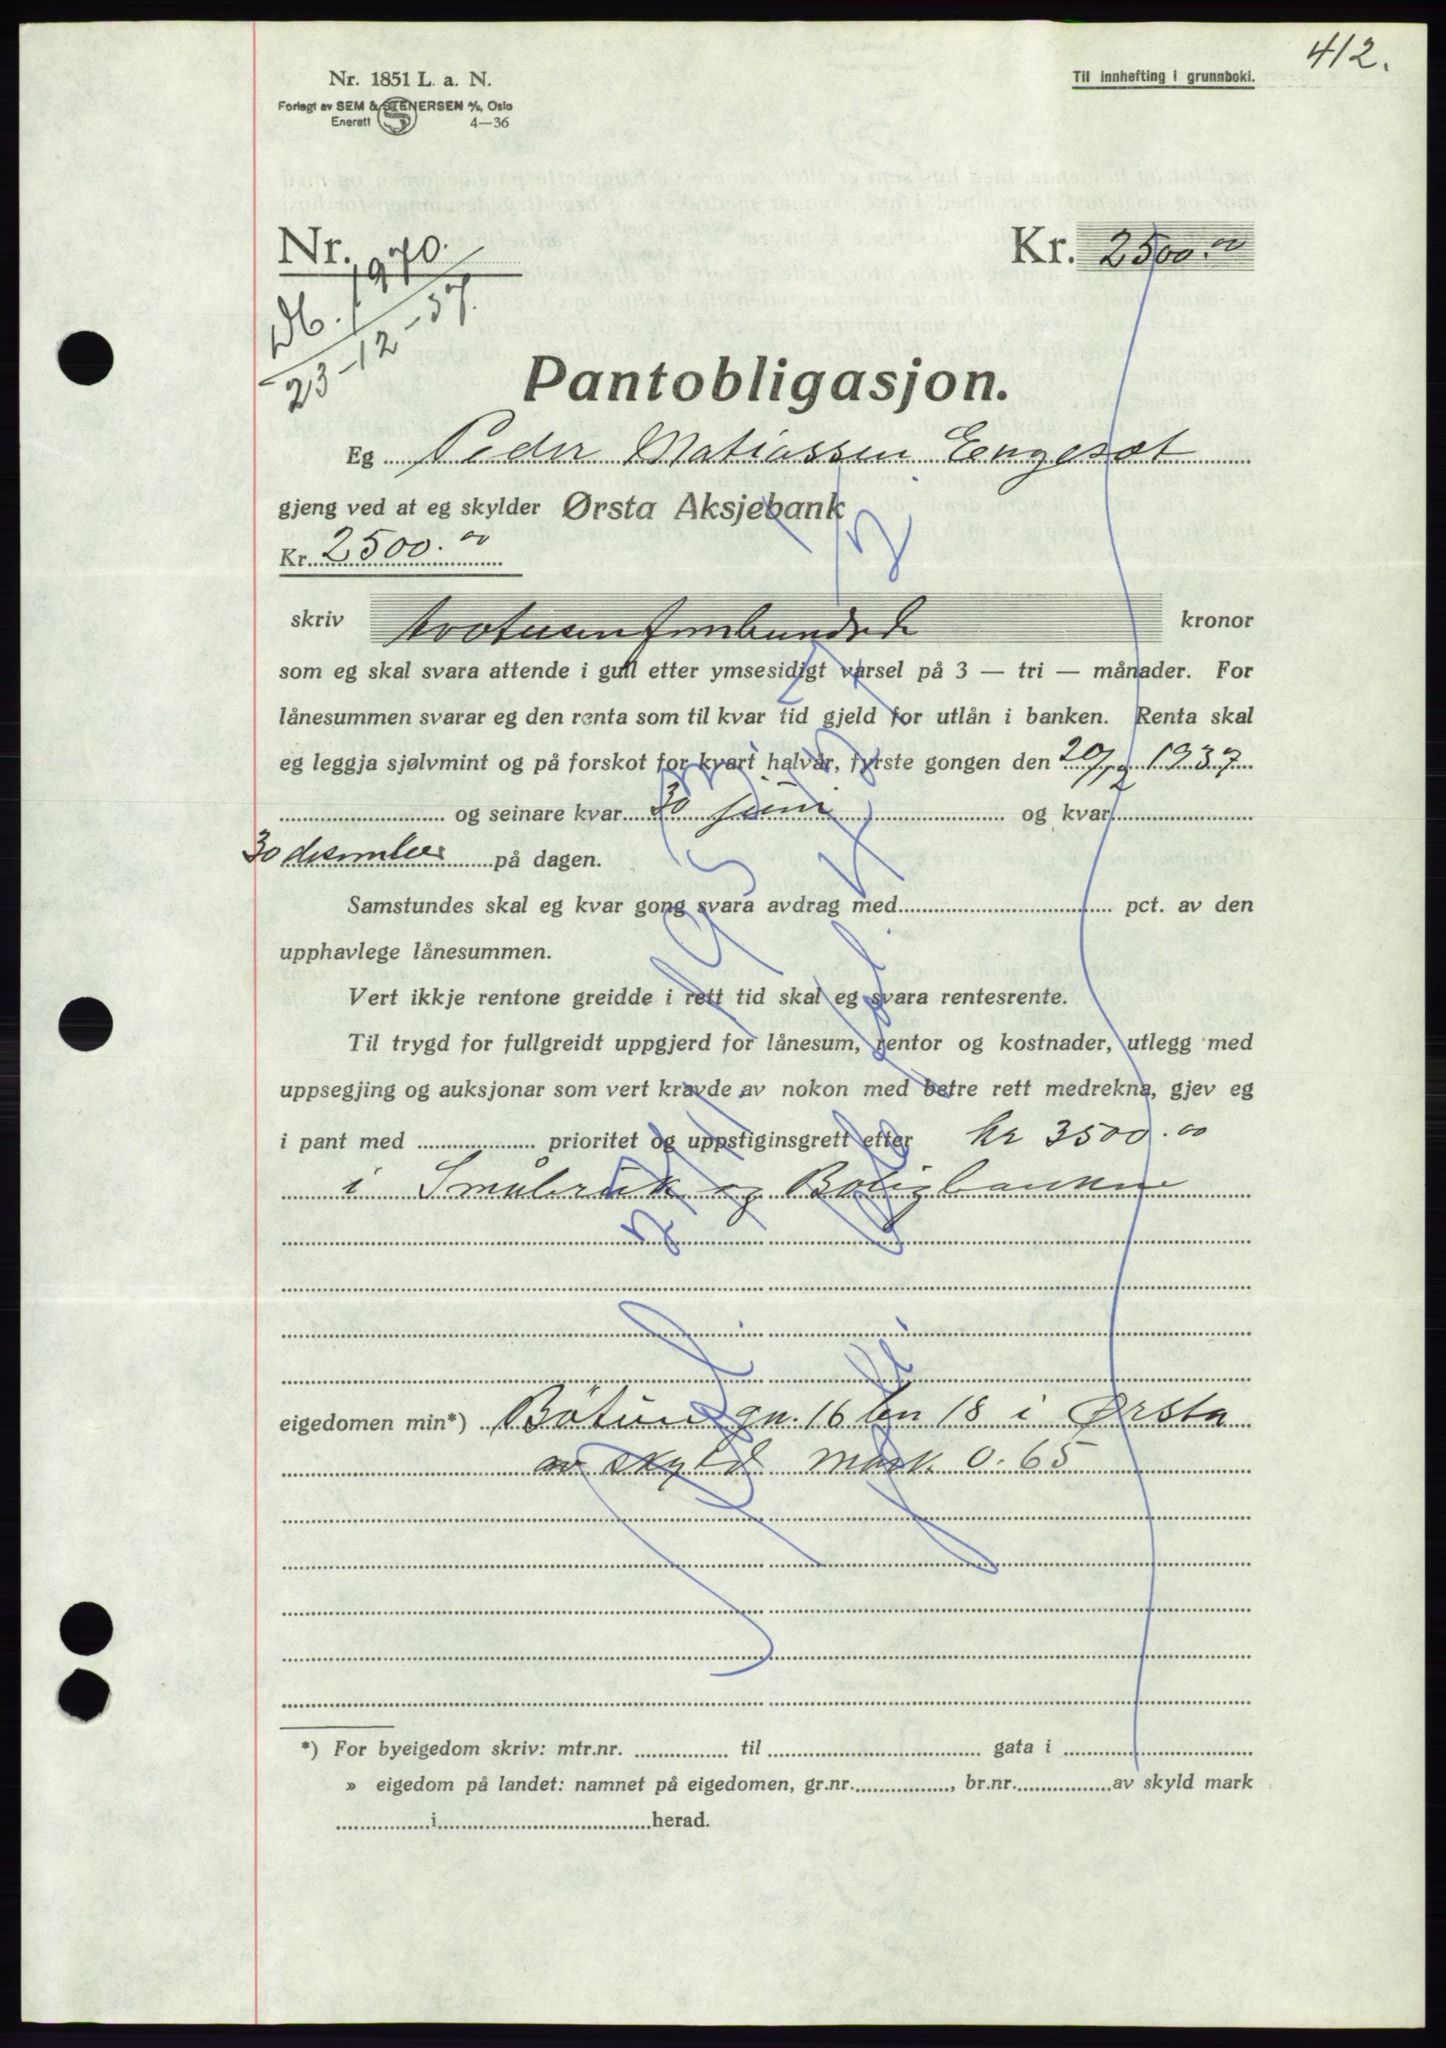 412.
Nr. 1851 L. a. N.
Til innhefting i grunnboki.
Forlagt av SEM & STENERSEN A/S, Oslo
Enerett 4—36
Nr.
Kr. 2500.00
Db. 1970.
23-12-37.
Pantobligasjon.
Eg Peder Matiassen Engeset
gjeng ved at eg skylder Ørsta Aksjebank
Kr. 2500.00
skriv totusenfemhundrede kronor
som eg skal svara attende i gull etter ymsesidigt varsel på 3 — tri — månader. For
lånesummen svarar eg den renta som til kvar tid gjeld for utlån i banken. Renta skal
eg leggja sjølvmint og på forskot for kvart halvår, fyrste gongen den 20/12 1937
og seinare kvar 30 juni og kvar
30 desember på dagen.
Samstundes skal eg kvar gong svara avdrag med pct. av den
upphavlege lånesummen.
Vert ikkje rentone greidde i rett tid skal eg svara rentesrente.
Til trygd for fullgreidt uppgjerd for lånesum, rentor og kostnader, utlegg med
uppsegjing og auksjonar som vert kravde av nokon med betre rett medrekna, gjev eg
i pant med prioritet og uppstiginsgrett etter kr 3500.00
i Småbruk og Boligbanken
eigedomen min*) Bøtun gn. 16 bn 18 i Ørsta
av skyld mark 0.65
*) For byeigedom skriv: mtr.nr. til gata i
» eigedom på landet: namnet på eigedomen, gr.nr. , br.nr. av skyld mark
i herad.